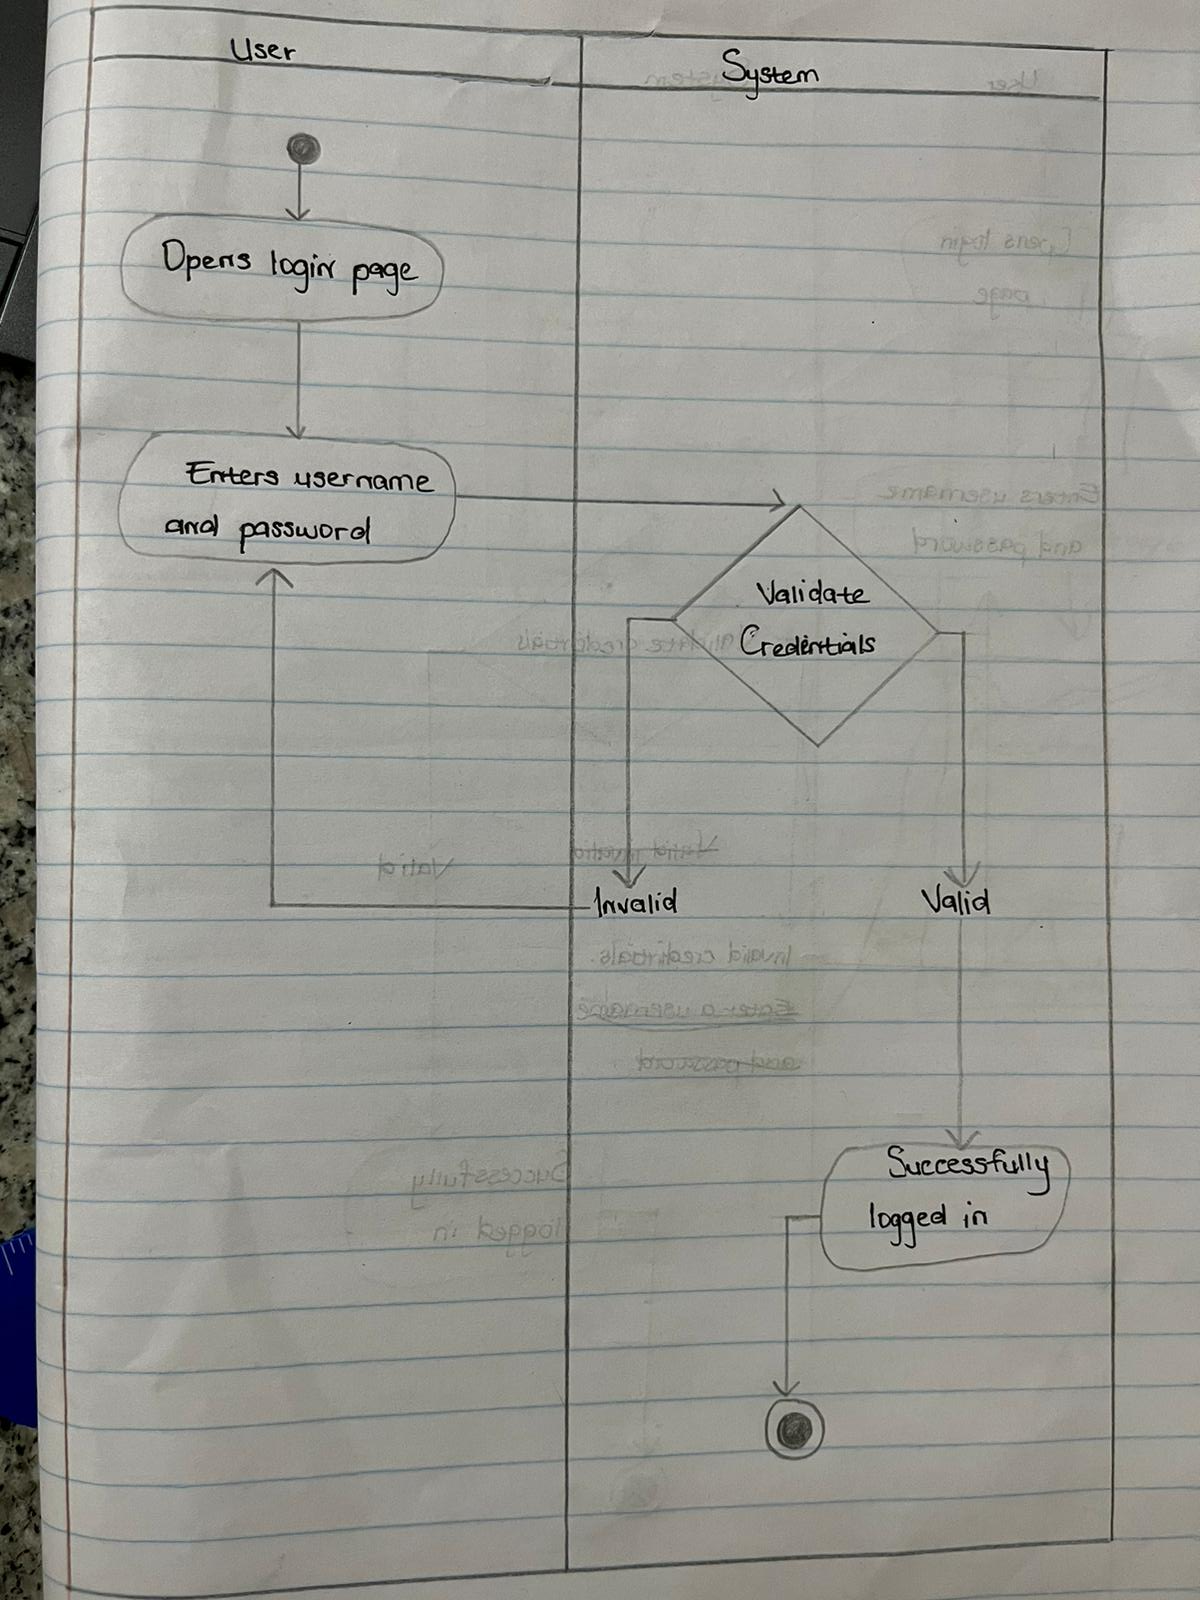 User
System
Opens login page
Enters username
and password
Validate
Credentials
Invalid
Valid
Successfully
logged in